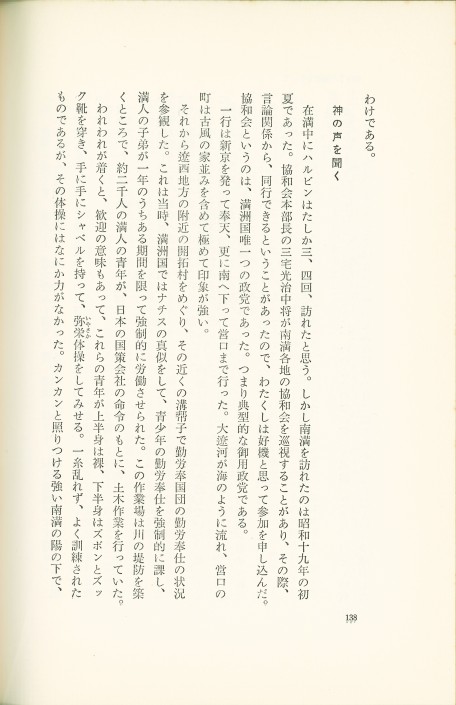 わけである。
神の声を聞く
在満中にハルビンはたしか三、四回、訪れたと思う。しかし南満を訪れたのは昭和十九年の初
夏であった。協和会本部長の三宅光治中将が南満各地の協和会を巡視することがあり、その際、
言論関係から、同行できるということがあったので、わたくしは好機と思って参加を申し込んだ。
協和会というのは、満洲国唯一つの政党であった。つまり典型的な御用政党である。
一行は新京を発って奉天、更に南へ下って営口まで行った。大遼河が海のように流れ、営口の
町は古風の家並みを含めて極めて印象が強い。
それから遼西地方の附近の開拓村をめぐり、その近くの溝幇子で勤労奉国団の勤労奉仕の状況
を参観した。これは当時、満洲国ではナチスの真似をして、青少年の勤労奉仕を強制的に課し、
満人の子弟が一年のうちある期間を限って強制的に労働させられた。この作業場は川の堤防を築
くところで、約二千人の満人の青年が、日本の国策会社の命令のもとに、土木作業を行っていた。
われわれが着くと、歓迎の意味もあって、これらの青年が上半身は裸、下半身はズボンとズッ
ク靴を穿き、手に手にシャベルを持って、弥栄体操をしてみせる。一糸乱れず、よく訓練された
いやさか
ものであるが、その体操にはなにか力がなかった。カンカンと照りつける強い南満の陽の下で、
138